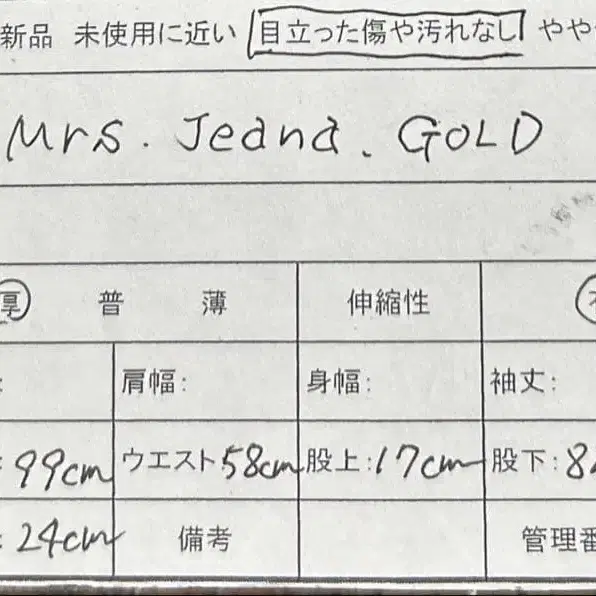 新品 未使用に近い 目立った傷や汚れなし やや
Mrs. Jeana. GOLD
厚 普 薄 伸縮性
: 肩幅: 身幅: 袖丈:
: 99cm ウエスト 58cm 股上: 17cm 股下: 8
: 24cm 備考 管理番